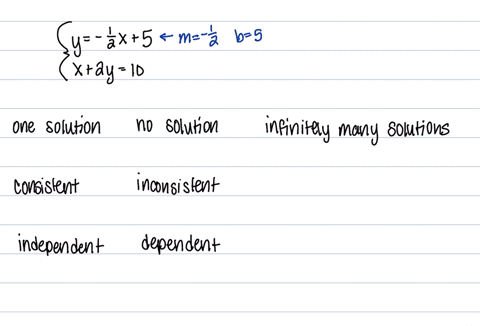 y = -1/2x + 5 ← m = -1/2 b = 5
x + 2y = 10
one solution no solution infinitely many solutions
consistent inconsistent
independent dependent